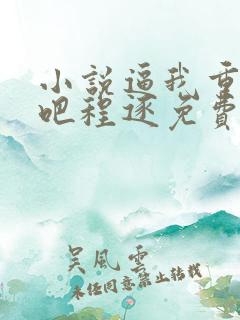 小説逼我重
吧程逐免費
吴風雲
未经同意禁止转载